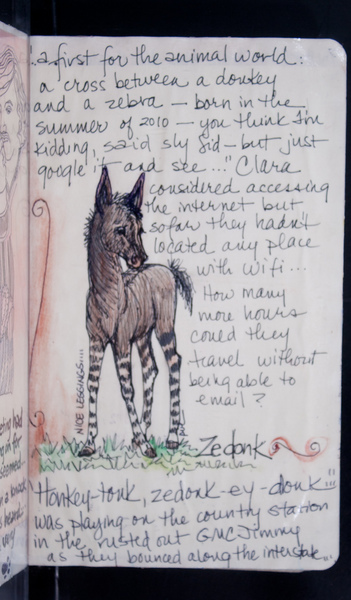 ..a first for the animal world:
a cross between a donkey
and a zebra — born in the
summer of 2010 — you think I'm
kidding, said sly Sid — but just
google it and see..." Clara
considered accessing
the internet but
so far they hadn't
located any place
with wifi...
How many
more hours
could they
travel without
being able to
email?
NICE LEGGINGS.....
Zedonk
"Honkey-tonk, zedonk-ey-donk"...
was playing on the country station
in the rusted out GMC Jimmy
as they bounced along the interstate...